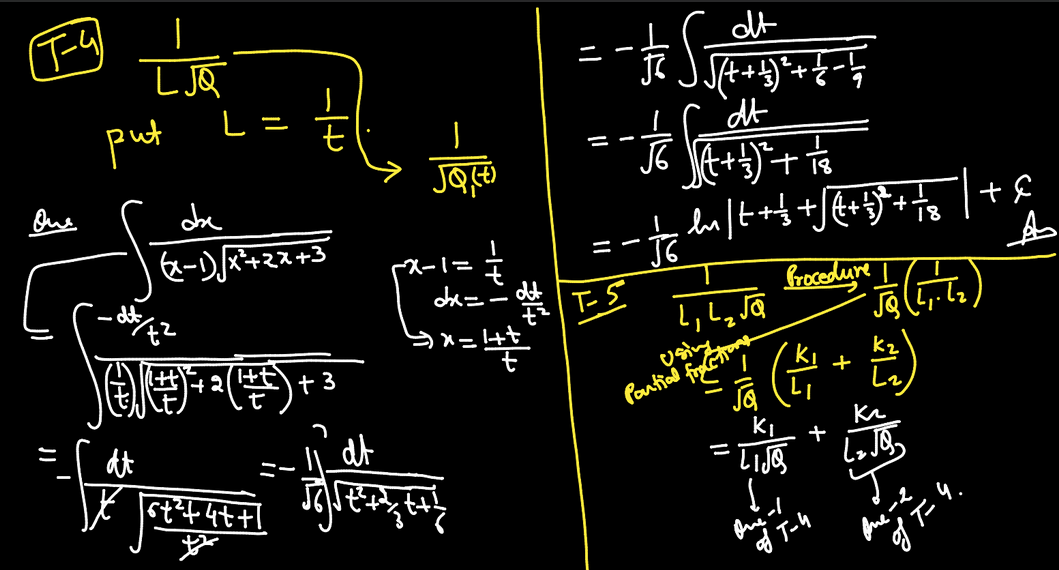 T-4
1/(L√Q)
put L = 1/t.
1/√Q₁(t)
Que ∫ dx/((x-1)√(x²+2x+3))
x-1 = 1/t
dx = -dt/t²
→ x = (1+t)/t
= ∫ (-dt/t²)/((1/t)√(((1+t)/t)²+2((1+t)/t)+3))
= -∫ dt/(t√((6t²+4t+1)/t²)) = -1/√6 ∫ dt/√(t²+2/3 t+1/6)
= -1/√6 ∫ dt/√((t+1/3)²+1/6-1/9)
= -1/√6 ∫ dt/√((t+1/3)²+1/18)
= -1/√6 ln|t+1/3+√((t+1/3)²+1/18)| + C
Ans
T-5 1/(L₁L₂√Q) Procedure 1/√Q (1/(L₁.L₂))
using Partial fractions
= 1/√Q (K₁/L₁ + K₂/L₂)
= K₁/(L₁√Q) + K₂/(L₂√Q)
Que-1 of T-4
Que-2 of T-4.